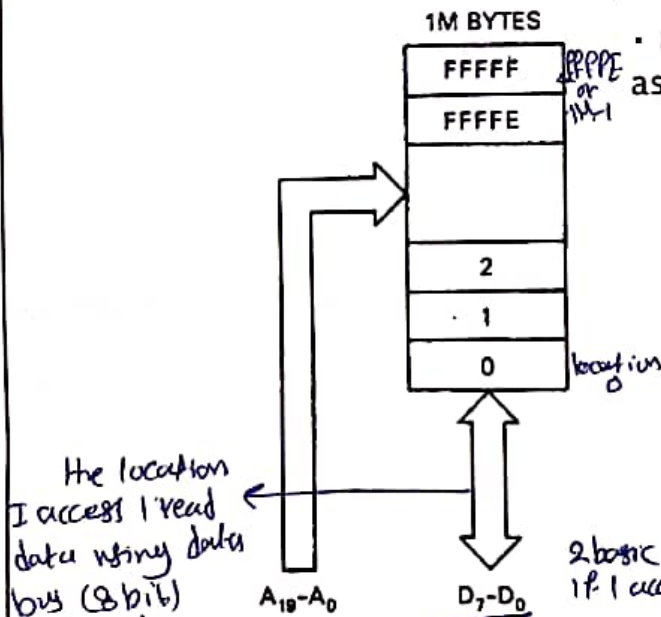 1M BYTES
FFFFF
or
as
FFFFE
1M-1
2
1
0
location
0
the location
I access I read
data using data
bus (8 bit)
A19-A0
D7-D0
2 basic
if I acc